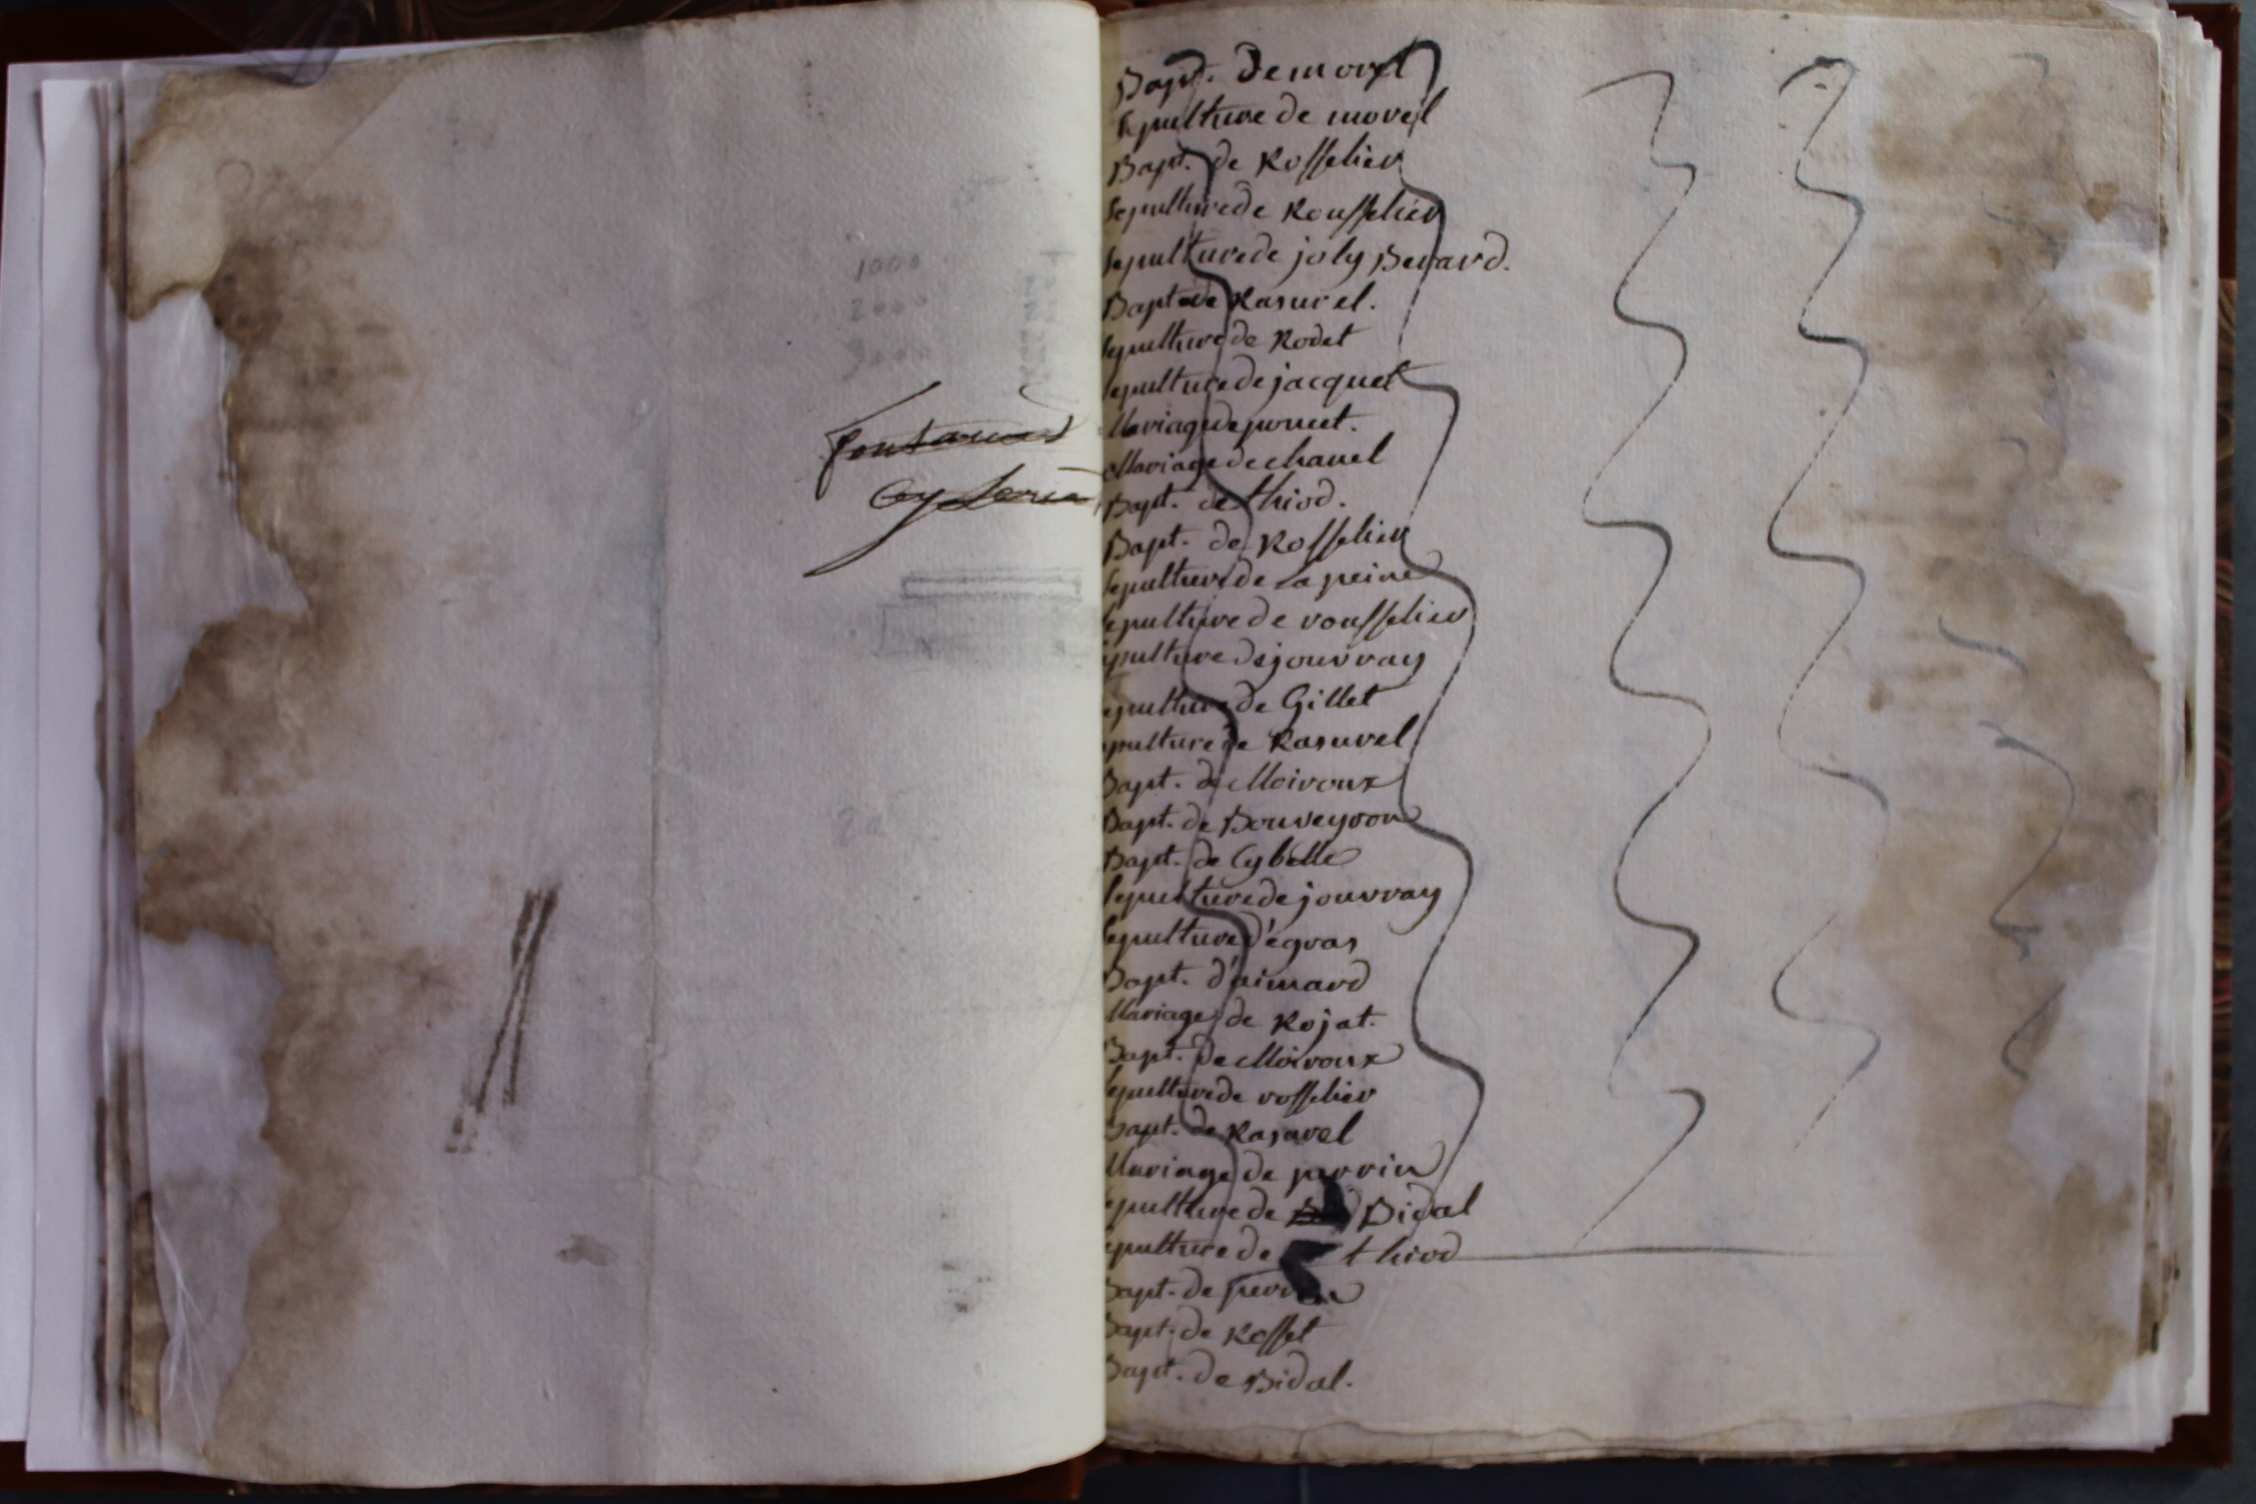 1000
2000
3000
Bapt. de morel
sepulture de morel
Bapt. de Rosselier
sepulture de Rousselier
sepulture de joly Berard.
Bapt de Rasurel.
sepulture de Rodet
sepulture de jacquet
Mariage de poncet.
Mariage de chanel
Bapt. de thiod.
Bapt. de Rosselier
sepulture de Lapeine
sepulture de rousselier
sepulture de jouvray
sepulture de Gillet
sepulture de Rasurel
Bapt. de Moiroux
Bapt. de Bouveyron
Bapt. de Cybelle
sepulture de jouvray
sepulture d'égras
Bapt. d'aimard
Mariage de Rojat.
Bapt. de Moiroux
sepulture de rosselier
Bapt. de Rasurel
Mariage de perrin
sepulture de Bidal
sepulture de thiod
Bapt. de
Bapt. de Rosset
Bapt. de Bidal.